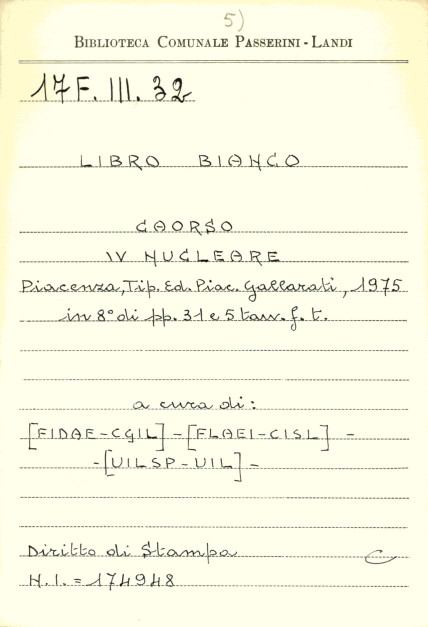 5)
BIBLIOTECA COMUNALE PASSERINI-LANDI
17 F. III. 32
LIBRO BIANCO
CAORSO
IV NUCLEARE
Piacenza, Tip. Ed. Piac. Gallarati, 1975
in 8° di pp. 31 e 5 tav. f. t.
a cura di:
[FIDAE-CGIL] - [FLAEI-CISL] -
-[UILSP-UIL] -
Diritto di Stampa C
N.I. = 174948